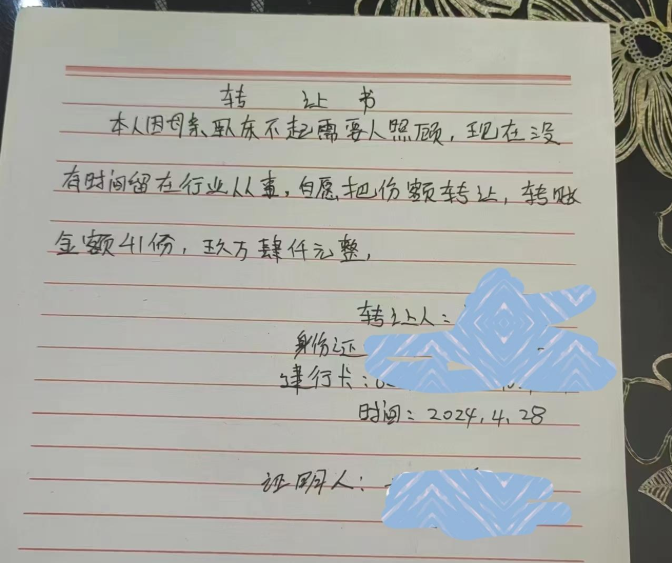 转让书
本人因母亲卧床不起需要人照顾，现在没
有时间留在行业从事，自愿把份额转让，转账
金额41份，玖万肆仟元整，
转让人：
身份证
建行卡：
时间：2024,4,28
证明人：